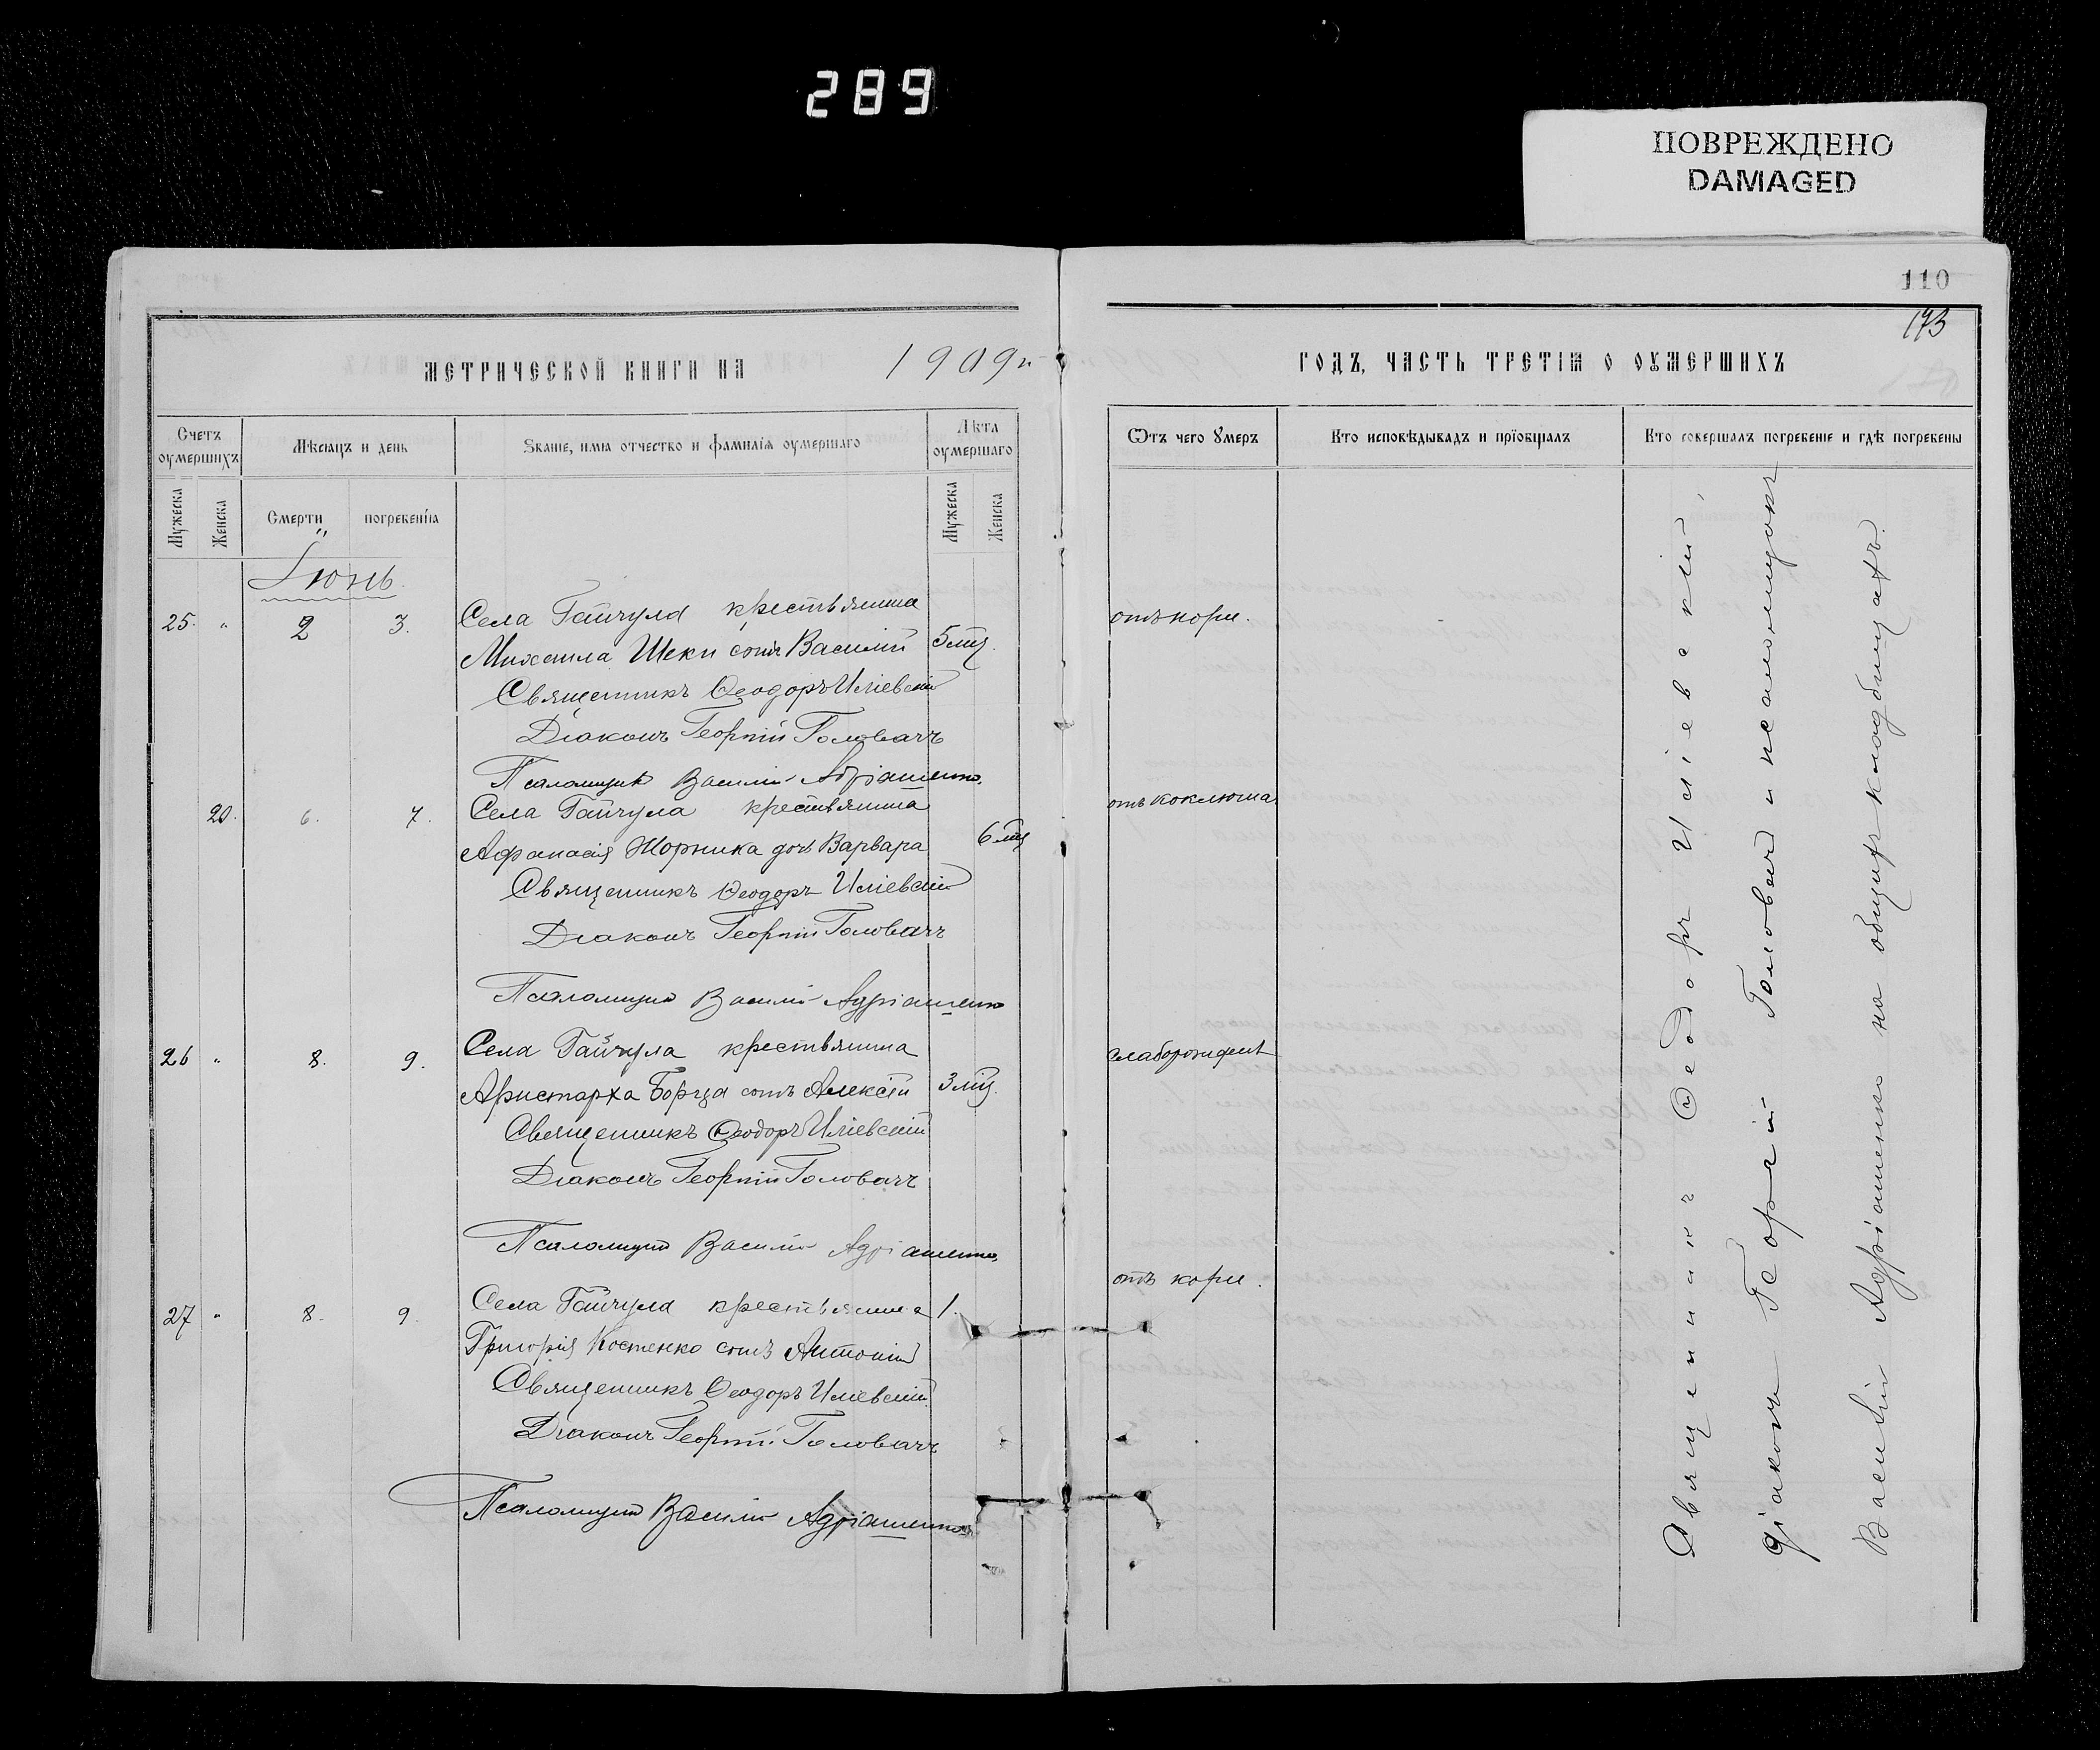 289
ПОВРЕЖДЕНО
DAMAGED
110
173
МЕТРИЧЕСКОЙ КНИГИ НА 1909 г.
ГОДЪ, ЧАСТЬ ТРЕТІѦ О ОУМЕРШИХЪ
Счетъ оумершихъ
Мѣсѧцъ и день
Званіе, имѧ отчество и фамиліѧ оумершаго
Лѣта оумершаго
Ѿтъ чего Умеръ
Кто исповѣдывалъ и пріобщалъ
Кто совершалъ погребеніе и гдѣ погребены
Мужеска
Женска
Смерти
погребеніѧ
Мужеска
Женска
Іюнь
25. " 2 3. Села Гайчула крестьянина
Михаила Шеки сынъ Василій 5 мц. отъ кори.
Священникъ Ѳеодоръ Иліевскій
Діаконъ Георгій Головачъ
Псаломщикъ Василій Адріашенко.
20. 6. 7. Села Гайчула крестьянина отъ коклюша
Афанасія Жорника дочь Варвара 6 мц
Священникъ Ѳеодоръ Иліевскій
Діаконъ Георгій Головачъ
Псаломщикъ Василій Адріашенко
26 " 8. 9. Села Гайчула крестьянина слаборожденъ
Аристарха Борца сынъ Алексѣй 3 мц.
Священникъ Ѳеодоръ Иліевскій
Діаконъ Георгій Головачъ
Псаломщикъ Василій Адріашенко.
27 " 8. 9. Села Гайчула крестьянина 1. отъ кори.
Григорія Костенко сынъ Антоній
Священникъ Ѳеодоръ Иліевскій
Діаконъ Георгій Головачъ
Псаломщикъ Василій Адріашенко
Священникъ Ѳеодоръ Иліевскій
діаконъ Георгій Головачъ и псаломщикъ
Василій Адріашенко на общихъ кладбищахъ.